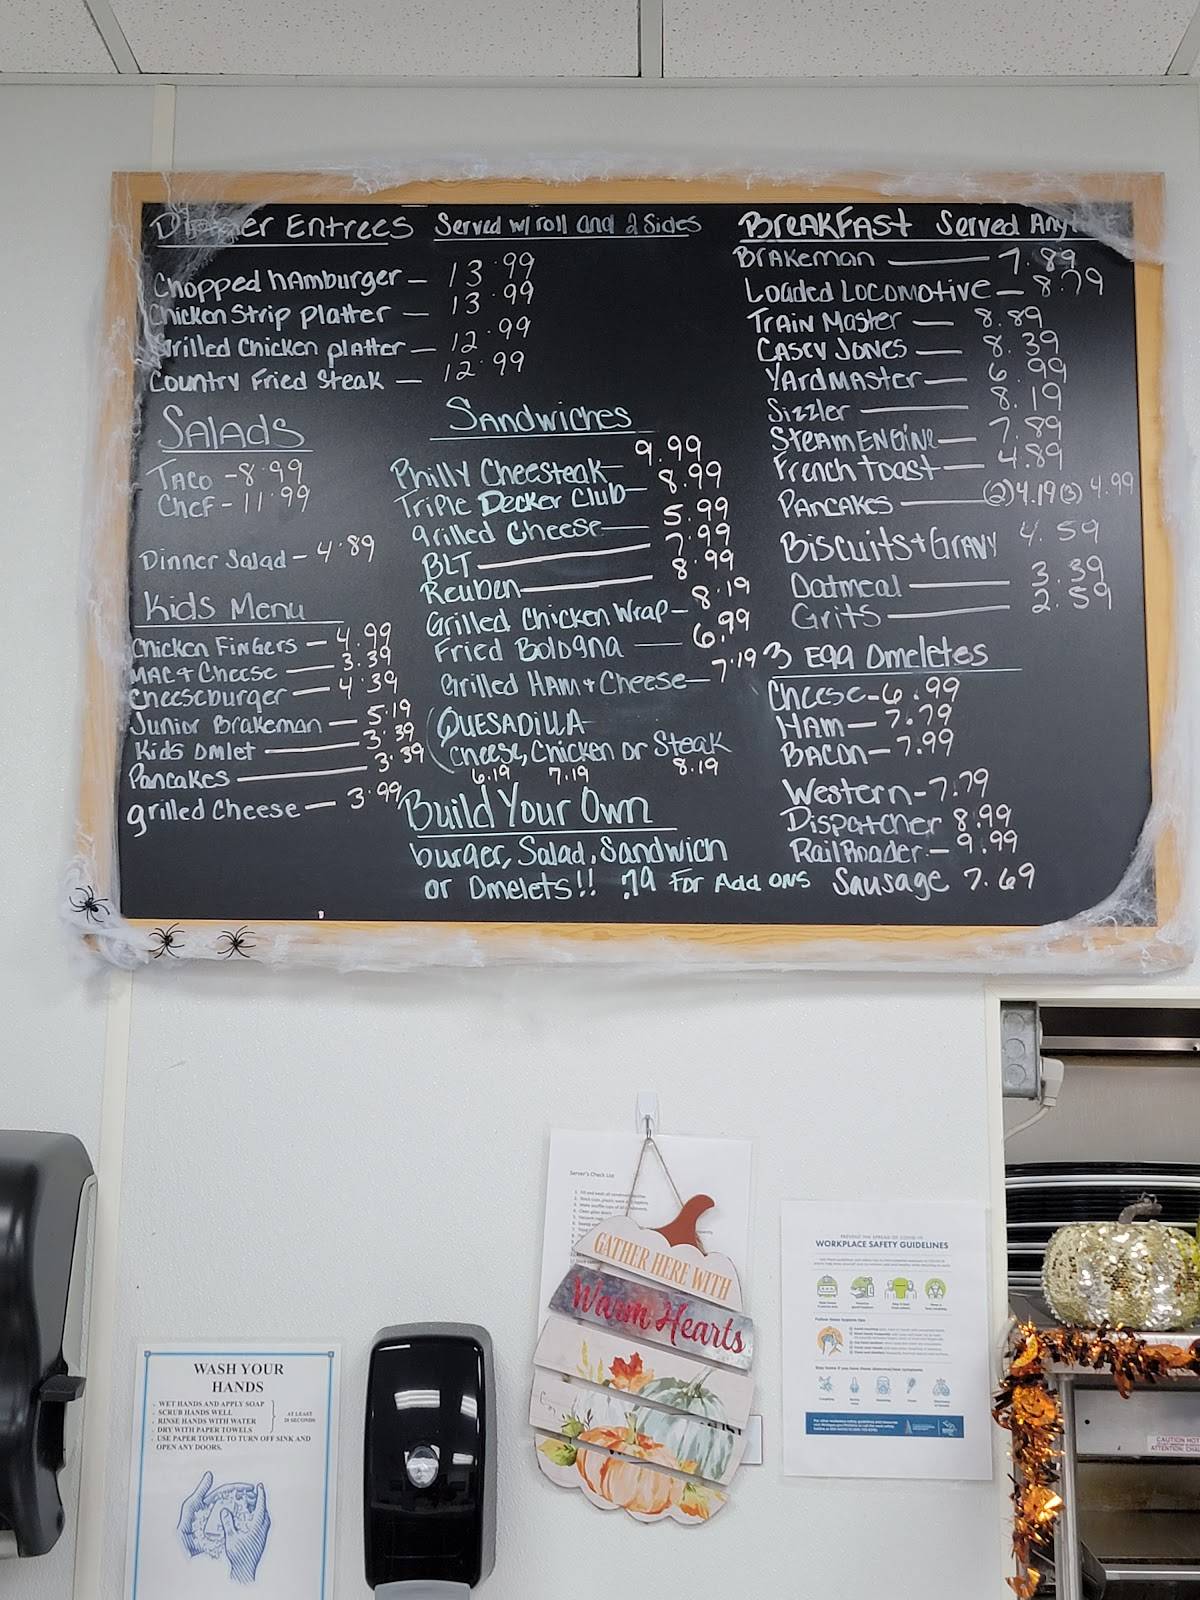 Dinner Entrees Served w/ roll and 2 Sides
Chopped hamburger — 13.99
Chicken Strip platter — 13.99
Grilled Chicken platter — 12.99
Country Fried Steak — 12.99
Salads
Taco - 8.99
Chef - 11.99
Dinner Salad - 4.89
Kids Menu
Chicken Fingers — 4.99
Mac + Cheese — 3.39
Cheeseburger — 4.39
Junior Brakeman — 5.19
Kids Omlet — 3.39
Pancakes — 3.39
grilled Cheese — 3.99
Sandwiches
Philly Cheesteak — 9.99
Triple Decker Club — 8.99
grilled Cheese — 5.99
BLT — 7.99
Reuben — 8.99
Grilled Chicken Wrap — 8.19
Fried Bologna — 6.99
Grilled Ham + Cheese — 7.19
Quesadilla
Cheese, Chicken or Steak
6.19 7.19 8.19
Build Your Own
burger, Salad, Sandwich
or Omelets!! .79 For Add ons
Breakfast Served
Brakeman — 7.89
Loaded Locomotive — 8.79
Train Master — 8.89
Casey Jones — 8.39
Yardmaster — 6.99
Sizzler — 8.19
Steam Engine — 7.89
French toast — 4.89
Pancakes — (2) 4.19 (3) 4.99
Biscuits + Gravy 4.59
Oatmeal — 3.39
Grits — 2.59
3 Egg Omeletes
Cheese - 6.99
Ham — 7.79
Bacon — 7.99
Western - 7.79
Dispatcher 8.99
RailRoader — 9.99
Sausage 7.69
Server's Check List
GATHER HERE WITH
Warm Hearts
PREVENT THE SPREAD OF COVID-19
WORKPLACE SAFETY GUIDELINES
WASH YOUR
HANDS
- WET HANDS AND APPLY SOAP
- SCRUB HANDS WELL
- RINSE HANDS WITH WATER
- DRY WITH PAPER TOWELS
- USE PAPER TOWEL TO TURN OFF SINK AND
OPEN ANY DOORS.
AT LEAST
20 SECONDS
CAUTION HOT